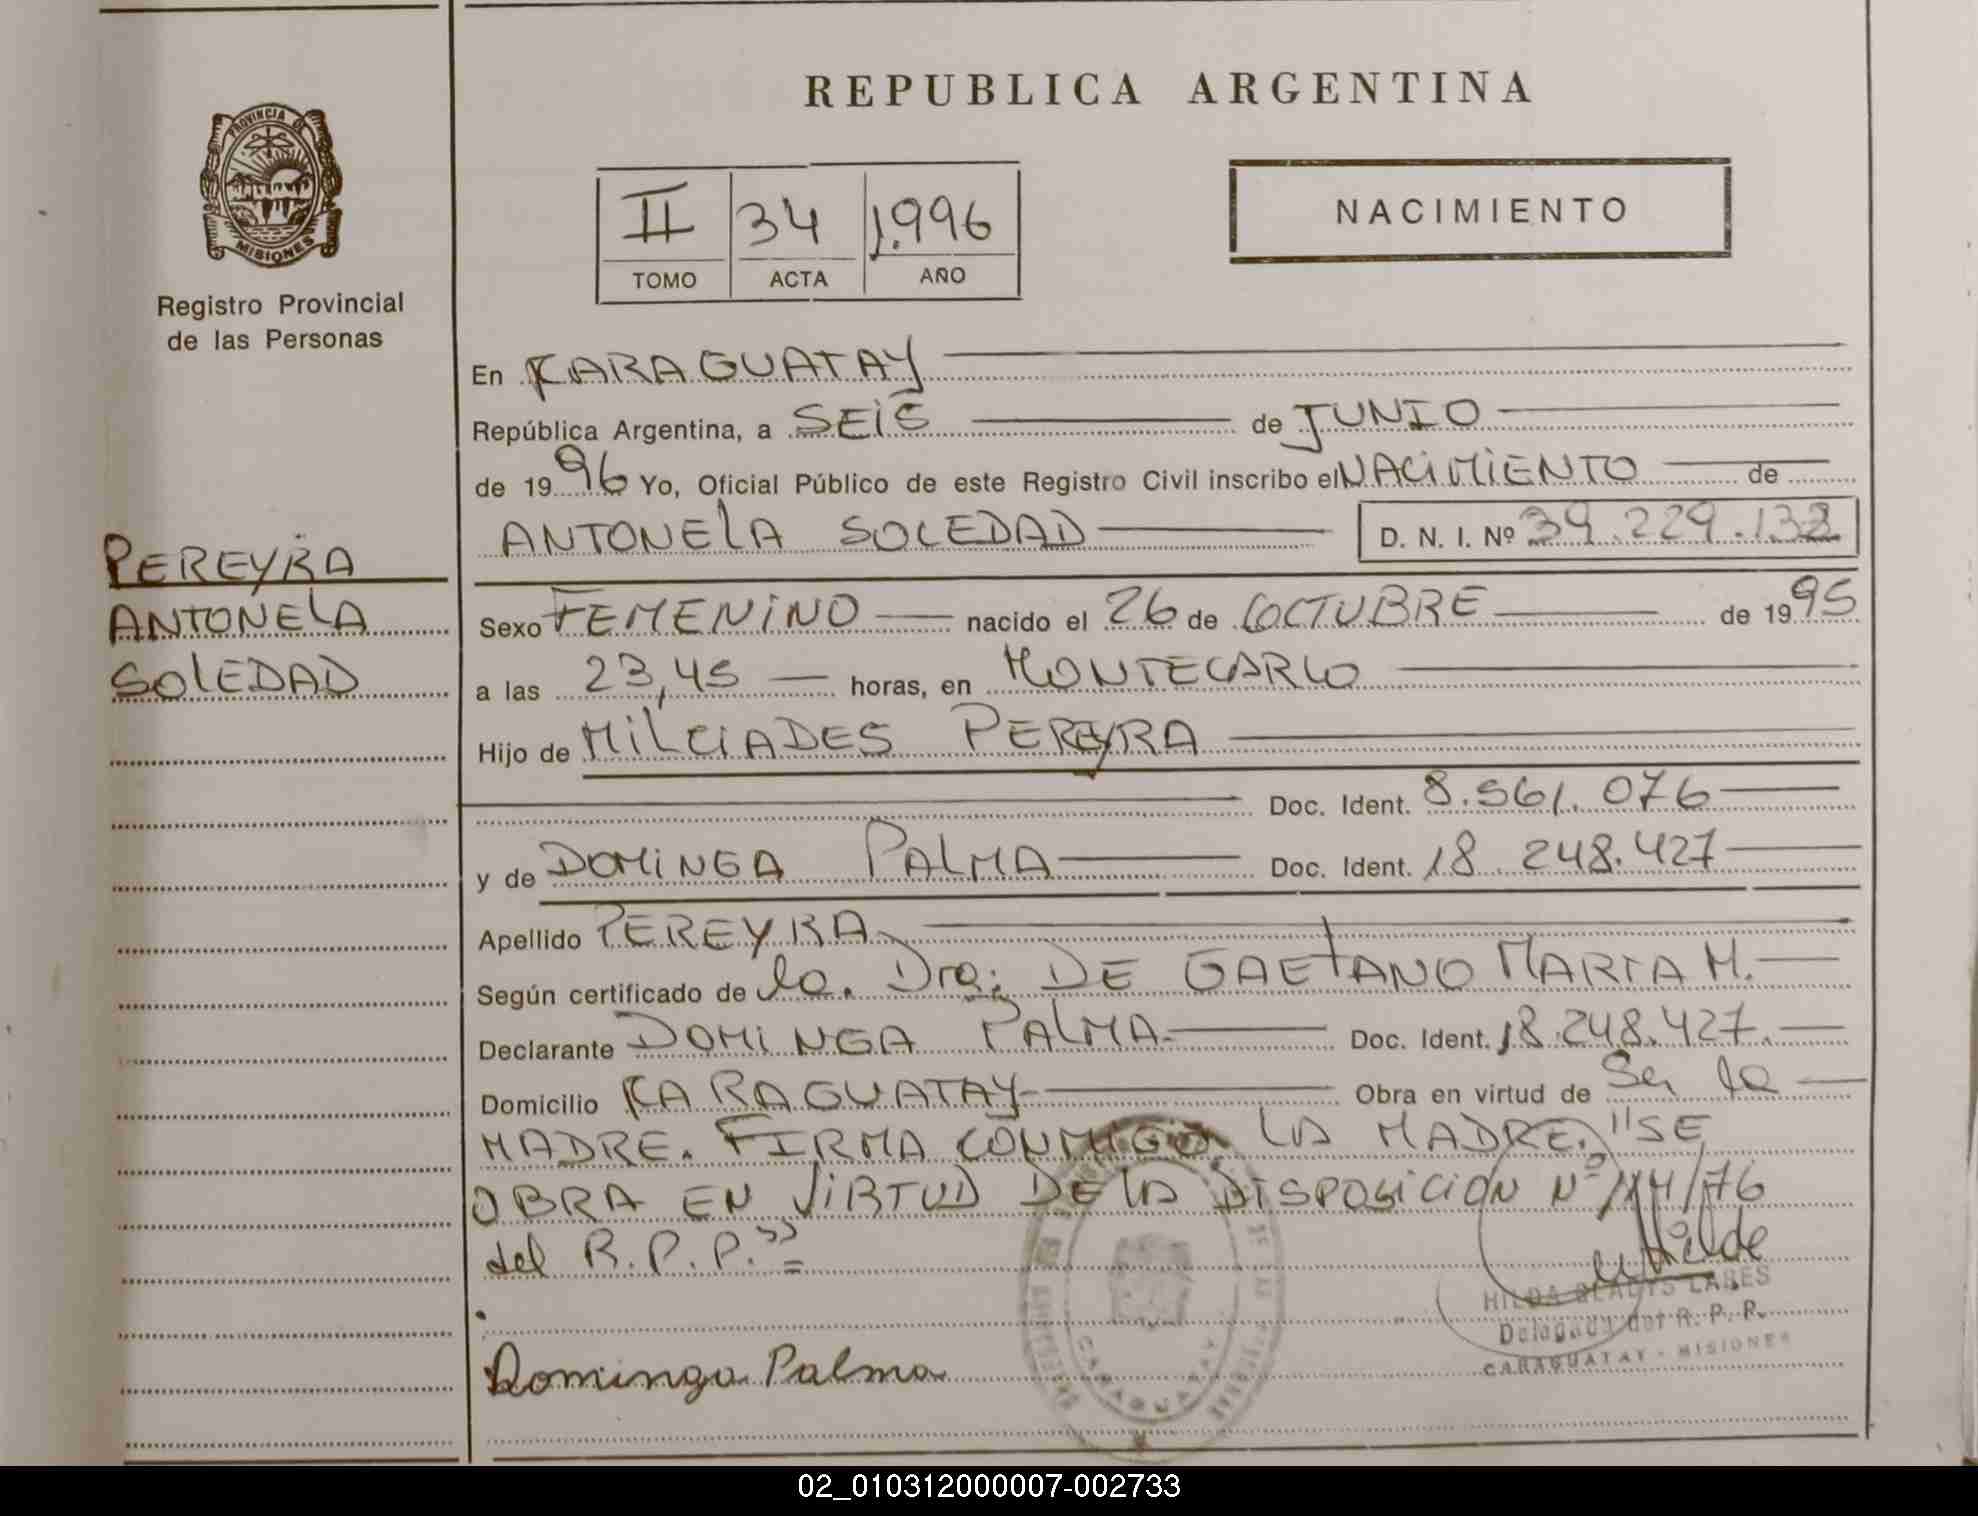 REPUBLICA ARGENTINA
PROVINCIA DE
MISIONES
Registro Provincial
de las Personas
II 34 1.996
TOMO ACTA AÑO
NACIMIENTO
En CARAGUATAY
República Argentina, a SEIS de JUNIO
de 1996 Yo, Oficial Público de este Registro Civil inscribo el NACIMIENTO de
ANTONELA SOLEDAD D. N. I. Nº 39.229.132
PEREYRA
ANTONELA
SOLEDAD
Sexo FEMENINO nacido el 26 de OCTUBRE de 1995
a las 23,45 horas, en MONTECARLO
Hijo de MILCIADES PEREYRA
Doc. Ident. 8.561.076
y de DOMINGA PALMA Doc. Ident. 18.248.427
Apellido PEREYRA
Según certificado de la. Dra: DE GAETANO MARIA M.
Declarante DOMINGA PALMA Doc. Ident. 18.248.427.
Domicilio CARAGUATAY Obra en virtud de Ser la
MADRE. FIRMA CONMIGO LA MADRE. "SE
OBRA EN VIRTUD DE LA DISPOSICION Nº 114/76
del R.P.P."=
HILDA GLADYS LABES
Delegada del R. P. R.
CARAGUATAY - MISIONES
CARAGUATAY
Dominga Palma
02_010312000007-002733